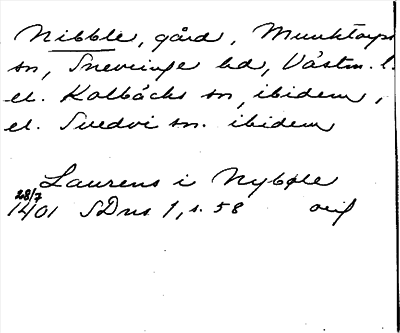 Nibble, gård, Munktorps
sn, Snevringe hd, Västm. l.
el. Kolbäcks sn, ibidem,
el. Svedvi sn. ibidem
Laurens i Nybøle
28/7
1401 SDns 1, s. 58 orig